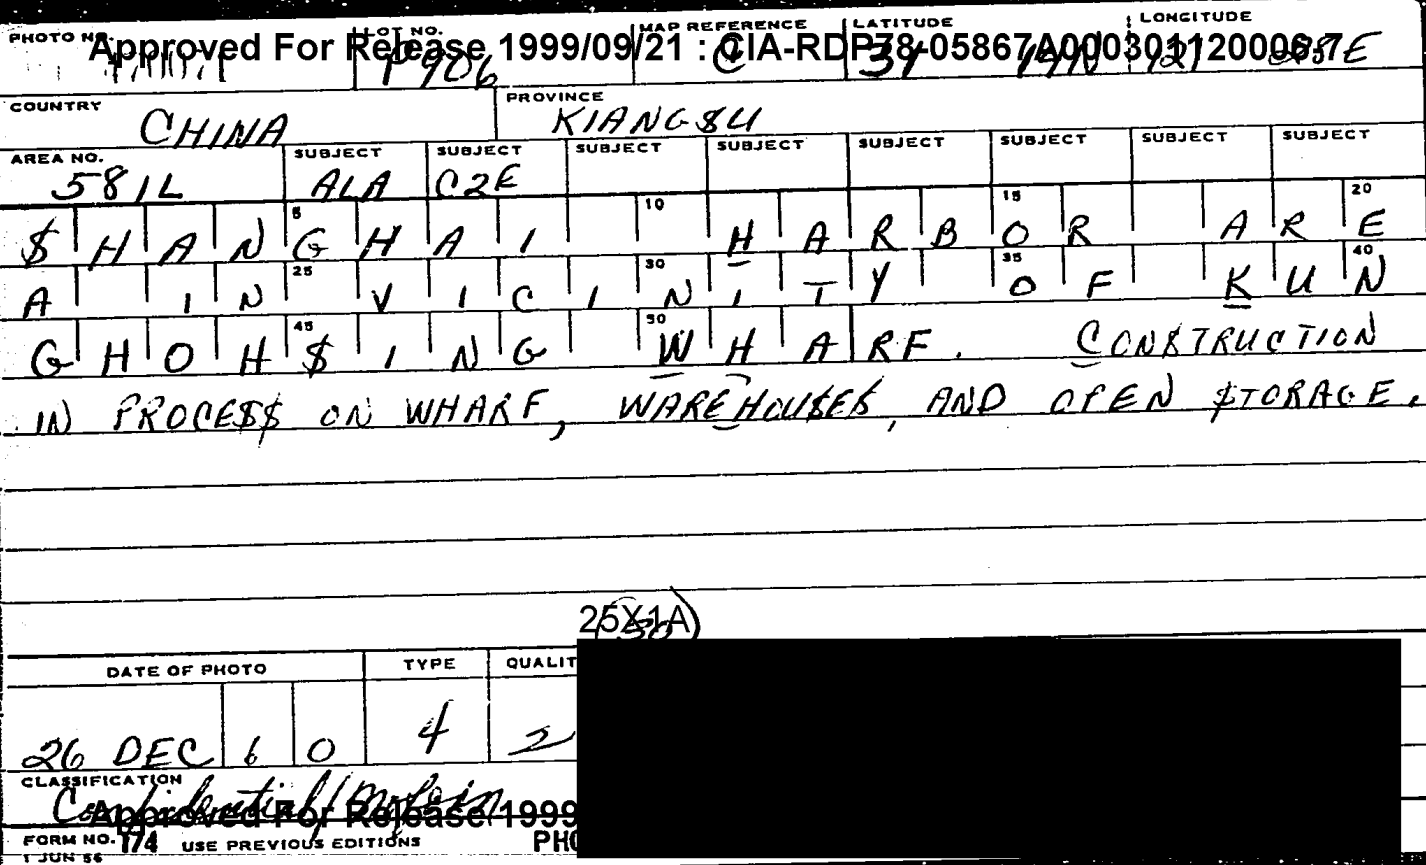 PHOTO NO. LOT NO. MAP REFERENCE LATITUDE LONGITUDE
Approved For Release 1999/09/21 : CIA-RDP78-05867A000301120006-7
P 906 C 31 N 121 E
COUNTRY PROVINCE
CHINA KIANGSU
AREA NO. SUBJECT SUBJECT SUBJECT SUBJECT SUBJECT SUBJECT SUBJECT SUBJECT
581L ALA C2E
5 10 15 20
SHANGHAI HARBOR ARE
25 30 35 40
A IN VICINITY OF KUN
45 50
GHOHSING WHARF. CONSTRUCTION
IN PROCESS ON WHARF, WAREHOUSES, AND OPEN STORAGE.
25X1A
DATE OF PHOTO TYPE QUALIT
26 DEC 60 4 2
CLASSIFICATION
Confidential
Approved For Release 1999
FORM NO. 174 USE PREVIOUS EDITIONS PHO
1 JUN 56